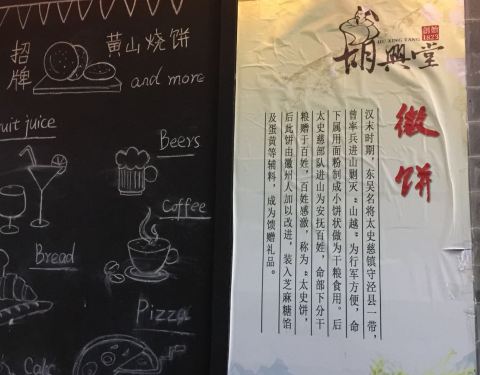 招牌
黄山烧饼
and more
ruit juice
Beers
Coffee
Bread
Pizza
Cake
胡興堂
HU XING TANG
創始
1823
徽饼
汉末时期，东吴名将太史慈镇守泾县一带，
曾率兵进山剿灭“山越”为行军方便，命
下属用面粉制成小饼状做为干粮食用。后
太史慈部队进山为安抚百姓，命部下分干
粮赠于百姓，百姓感激，称为“太史饼，
后此饼由徽州人加以改进，装入芝麻糖馅
及蛋黄等辅料，成为馈赠礼品。